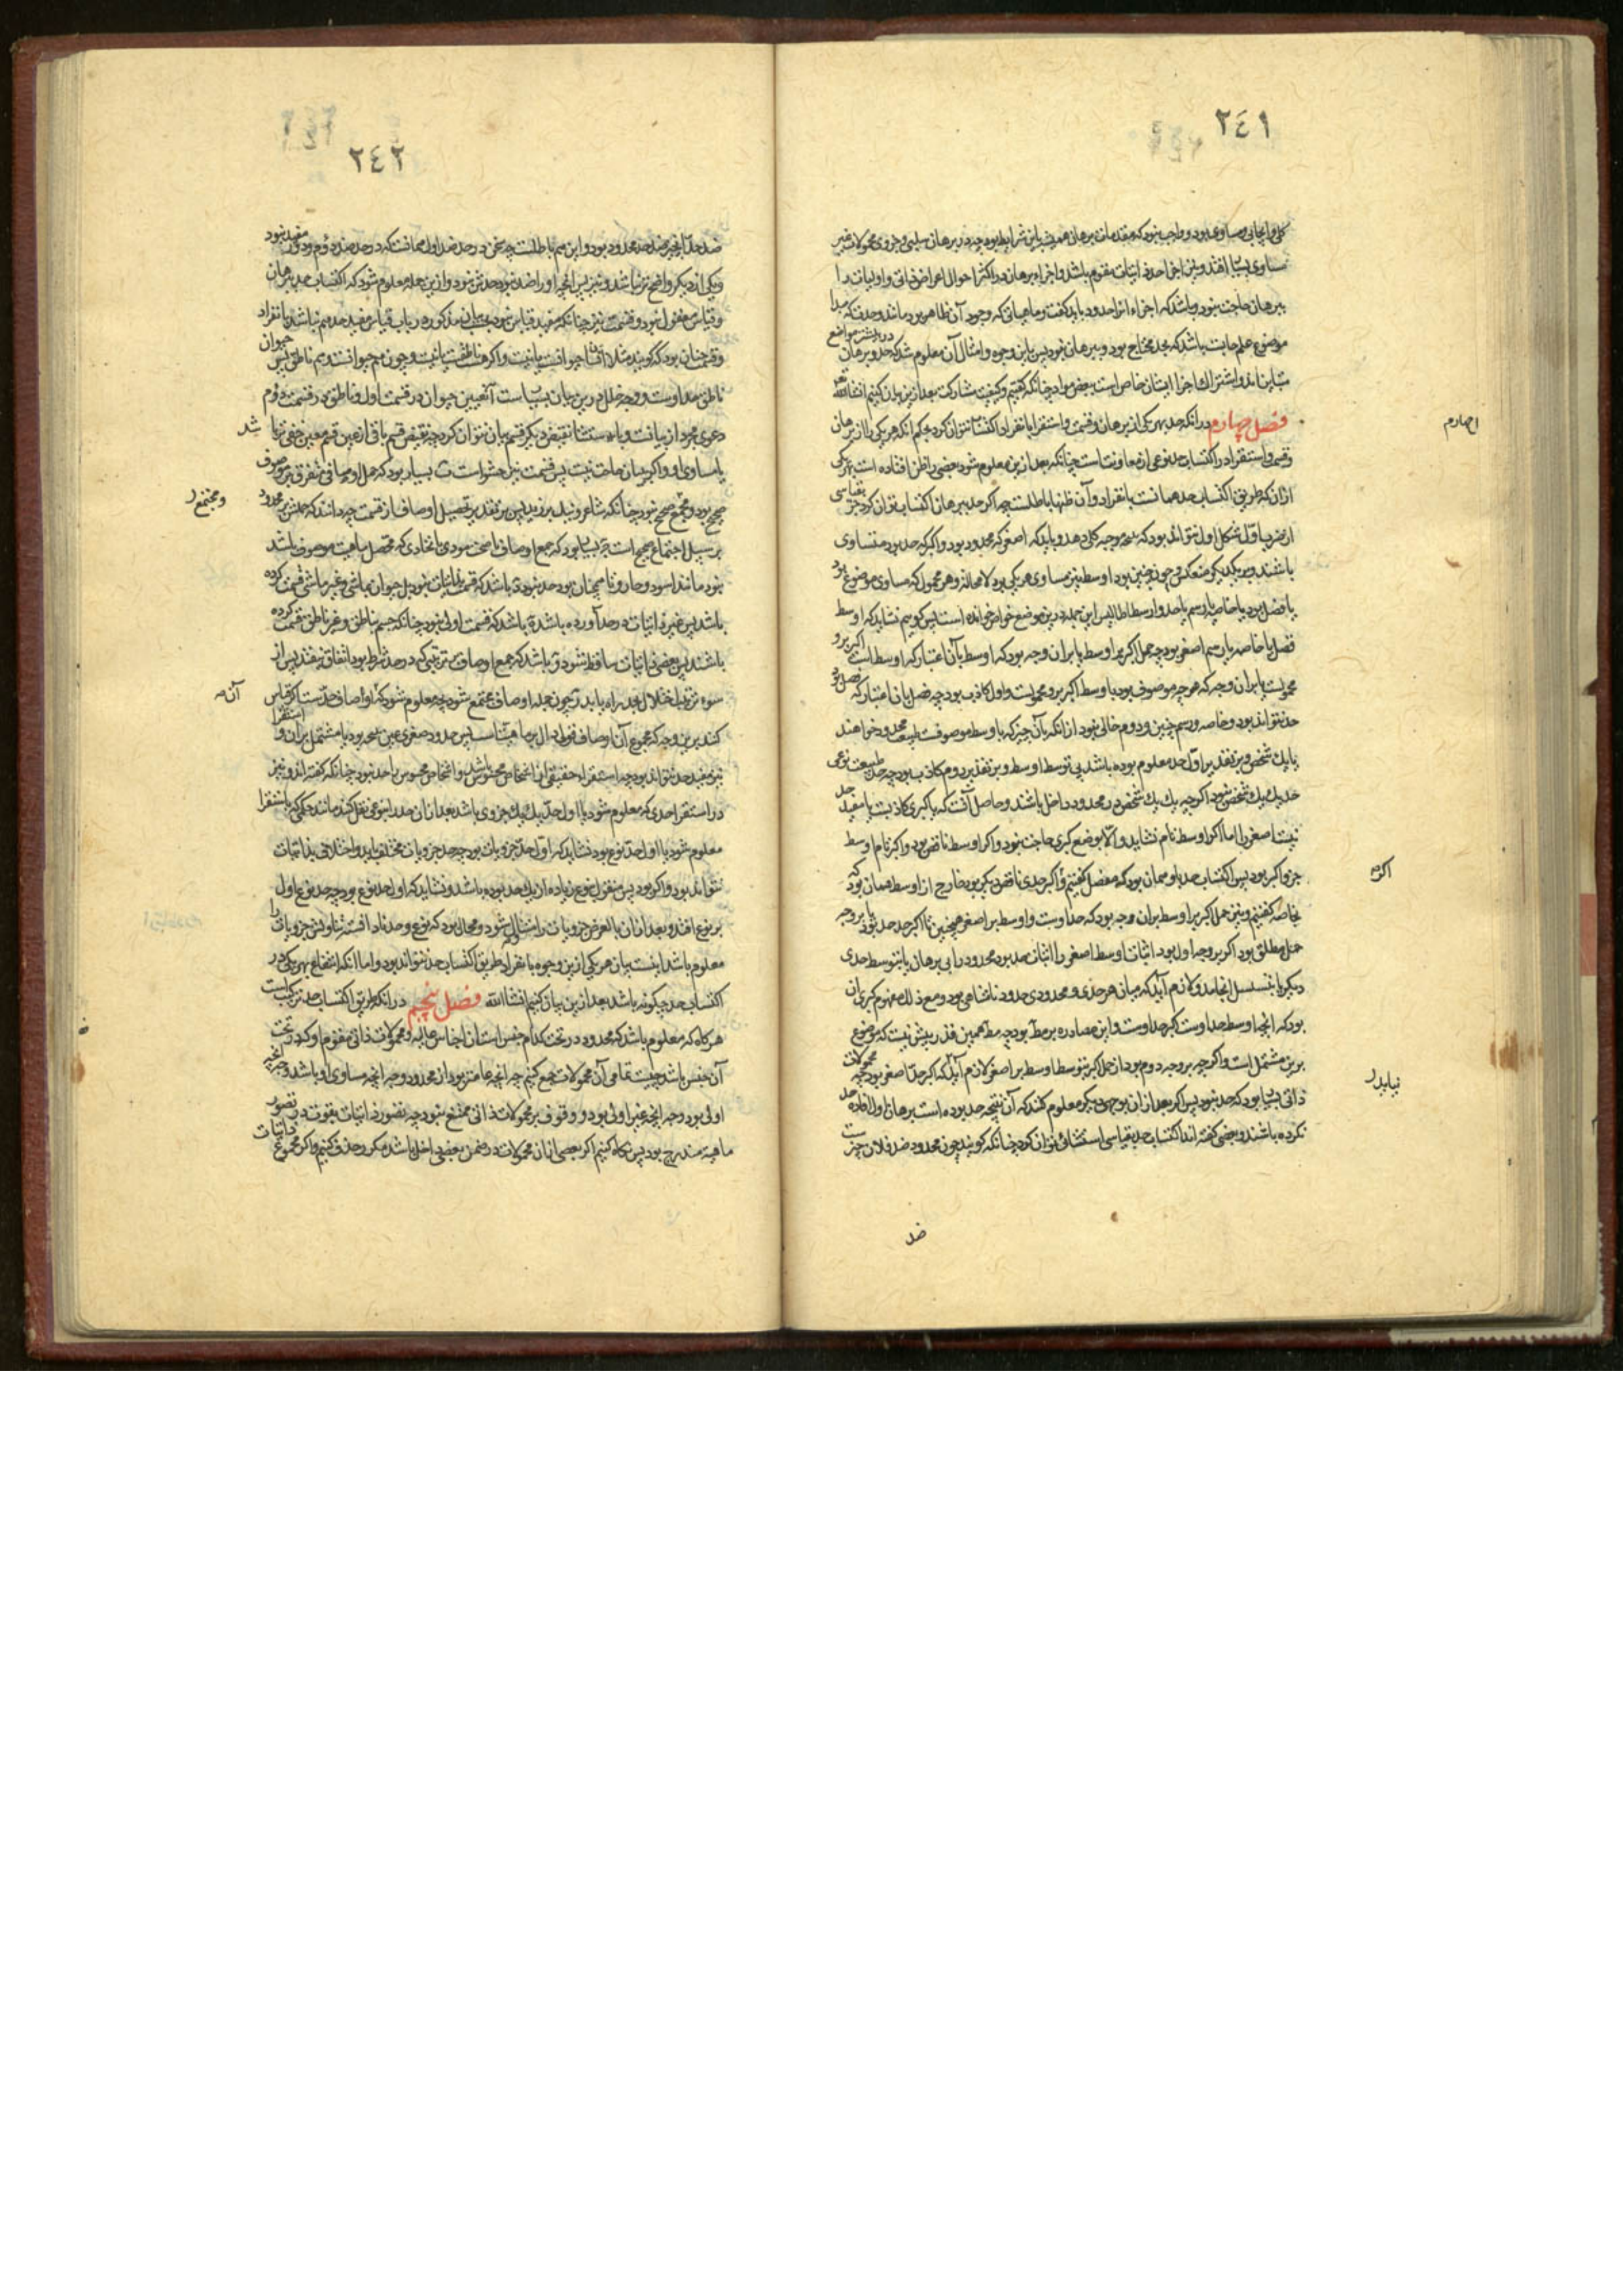 ٢٤١
کلی و ایجابی و مساوی بود و واجب نبود که مقدمات برهان همیشه باین شرایط بود چه در برهان سلبی و جزوی محمولات غیر
مساوی بسیار افتد و نیز اجزاء حد ذاتیات مقوم باشد و اجزاء برهان در اکثر احوال اعراض ذاتی و اولیات را
ببرهان حاجت نبود و باشد که اجزاء آنرا حدود باید گفت و ماهیاتی که وجود آن ظاهر بود مانند وحدت که مبدا
موضوع علم حساب باشد که بحد محتاج بود و ببرهان نبود پس باین وجوه و امثال آن معلوم شد که حد و برهان در بیشتر مواضع
متباین‌اند و اشتراک اجزا ایشان خاص است ببعض مواد چنانکه گفتیم و کیفیت مشارکت بعد ازین بیان کنیم انشاءالله
فصل چهارم در آنکه حد بهر یکی از برهان و قسمت و استقرا بانفراد اکتساب نتوان کرد بحکم آنکه هر یکی را از برهان
و قسمت و استقرا در اکتساب حد نوعی از معاونت است چنانکه بعد ازین معلوم شود بعضی را ظن افتاده است بهر یکی
از آن که طریق اکتساب حد همانست بانفراد و آن ظنها باطلست چه اگر حد ببرهان اکتساب توان کرد جز بقیاسی
از ضرب اول شکل اول نتواند بود که نتیجه موجبه کلی دهد و باید که اصغر که محدود بود و اکبر که حد بود متساوی
باشند و بر یکدیگر منعکس و چون چنین بود اوسط نیز مساوی هر یکی بود لامحاله و هر محمول که مساوی موضوع بود
یا فصل بود یا خاصه یا رسم یا حد و ارسطاطالیس این جمله درین موضع خواص خوانده است پس گوییم نشاید که اوسط
فصل یا خاصه یا رسم اصغر بود چه حمل اکبر بر اوسط یا بر آن وجه بود که اوسط بآن اعتبار که اوسط است اکبر برو
محمولست یا بر آن وجه که هرچه موصوف بود باوسط اکبر برو محمولست و اول کاذب بود چه فصل بآن اعتبار که فصل بود
حد نتواند بود و خاصه و رسم همچنین و دوم خالی نبود از آنکه بآن چیز که باوسط موصوفست طبیعت محدود خواهند
یا یک شخص و بر تقدیر اول حد معلوم بوده باشد بی توسط اوسط و بر تقدیر دوم کاذب بود چه حد طبیعت نوعی
حد یک یک شخص نشود اگرچه یک یک شخص در محدود داخل باشند و حاصل آنست که یا کبری کاذبست یا مفید حد
نیست اصغر را اما اگر اوسط نام نشاید و الا بوضع کبری حاجت نبود و اگر اوسط ناقص بود و اکبر تام اوسط
جزو اکبر بود پس اکتساب حد باو همان بود که مفصل گفتیم و اگر حدی ناقص دیگر بود خارج از اوسط همان بود که
بخاصه گفتیم و نیز حمل اکبر بر اوسط بر آن وجه بود که حد اوست و اوسط بر اصغر همچنین تا اکبر حد حد بود یا بر وجه
حمل مطلق بود اگر بر وجه اول بود اثبات اوسط اصغر را اثبات حد بود محدود را بی برهان یا بتوسط حدی
دیگر و بتسلسل انجامد و لازم آید که میان هر حدی و محدودی حدود نامتناهی بود و مع ذلک مفهوم کبری آن
بود که آنچه اوسط حد اوست اکبر حد اوست و این مصادره بر مط بود چه مط همین قدر بیش نیست که موضوع
برین مشتمل است و اگرچه بر وجه دوم بود از حمل اکبر بتوسط اوسط بر اصغر لازم آید که اکبر حد اصغر بود چه محمولات
ذاتی بسیار بود که حد نبود پس اگر بعد از آن بوجهی دیگر معلوم کند که آن نتیجه حد بوده است برهان اول افاده حد
نکرده باشند و بعضی گفته‌اند اکتساب حد بقیاسی استثنائی توان کرد چنانکه گویند چون محدود ضد فلان چیزست
ضد
اکر
نیاید
٢٤٢
ضد حد آن چیز ضد حد محدود بود و این هم باطلست چه سخن در حد ضد اول همانست که در حد ضد دوم و دور مفید نبود
و یکی از دیگر واضح‌تر نباشد و نیز پس آنچه او را ضد نبود حدش نبود و ازین جمله معلوم شود که اکتساب حد ببرهان
و قیاس معقول نبود و قسمت نیز چنانکه مفید قیاس نبود بعینه آن مذکوره در باب قیاس مفید حد هم نباشد بانفراد
و قسمت چنان بود که گویند مثلا انسان یا حیوانست یا نیست و اگر هست یا ناطقست یا نیست و چون هم حیوانست و هم ناطق پس حیوان
ناطق حد اوست و وجه خلل درین بیان بسیاست آنعین حیوان در قسمت اول و ناطق در قسمت دوم
دعوی مجرد از بیانست و باستثنا نقیض دیگر قسم بیان نتوان کرد چه نقیض قسم باقی از عین قسم معین خفی‌تر باشد
یا مساوی او و اگر ببیان حاجت نیست پس قسمت نیز حشو است و بسیار بود که حمل اوصافی متفرق بر موصوف
صحیح بود و مجتمع صحیح نبود چنانکه شاعر و نیک بر زید پس بر تقدیر تحصیل اوصاف از قسمت چه دانند که حملش بر محدود
ومجتمع
بر سبیل اجتماع صحیح است و بسیار بود که جمع اوصاف اصح نبود بی اتحادی که محصل ماهیت موصوف باشد
نبود مانند اسود و حار و تا همچنان بود حد نبود و باشد که قسمت بذاتیات نبود بل حیوان بماشی و غیر ماشی قسمت کرده
باشد پس غیر ذاتیات در حد آورده باشد و باشد که قسمت اولی نبود چنانکه جسم بناطق و غیر ناطق قسمت کرده
باشند پس بعضی ذاتیات ساقط شود و باشد که جمع اوصاف بترتیبی که در حد شرط بود اتفاق نیفتد پس از
سوء ترتیب اختلال بحد راه یابد و چون جمله اوصاف مجتمع شود چه معلوم شود که آن اوصاف حد است اگر قیاس
آن
کند برین وجه که مجموع آن اوصاف قول دال بر ماهیتست پس حدود صغری عین نتیجه بود یا مشتمل بر آن و استقرا
نیز مفید حد نتواند بود چه استقراء حقیقی از اشخاص محسوس باشد و اشخاص محسوس را حد نبود چنانکه گفته‌اند و نیز
در استقرا حدی که معلوم شود یا اول حد یک یک جزوی باشد بعد از آن حد را بنوعی نقل کند مانند حکمی که باستقرا
معلوم شود یا اول حد نوع بود نشاید که اول حد جزویات بود چه حد جزویات مختلف باید و اختلاف بذاتیات
نتواند بود و اگر بود پس منقول بنوع زیاده از یک حد بوده باشد و نشاید که اول حد نوع بود چه حد نوع اول
بر نوع افتد و بعد از آن بالعرض جزویات را متناول شود و محال بود که نوع و حد نادانسته تناولش جزویات را
معلوم باشد اینست بیان هر یکی ازین وجوه بانفراد طریق اکتساب حد نتواند بود و اما آنکه انتفاع بهر یکی در
اکتساب حد چگونه باشد بعد ازین بیان کنیم انشاءالله فصل پنجم در آنکه طریق اکتساب حد ترکیب است
هرگاه که معلوم باشد که محدود در تحت کدام جنس است از اجناس عالیه و محمولات ذاتی مقوم او که در تحت
آن جنس باشد چیست تمامی آن محمولات جمع کنیم چه آنچه عامتر بود از محدود و چه آنچه مساوی او باشد و چه آنچه
اولی بود و چه آنچه غیر اولی بود و وقوف بر محمولات ذاتی ممتنع نبود چه تصور ذاتیات بقوت در تصور
ماهیت مندرج بود پس نگاه کنیم اگر بعضی از آن محمولات در ضمن بعضی داخل باشد مکرر حذف کنیم و اگر مجموع ذاتیات